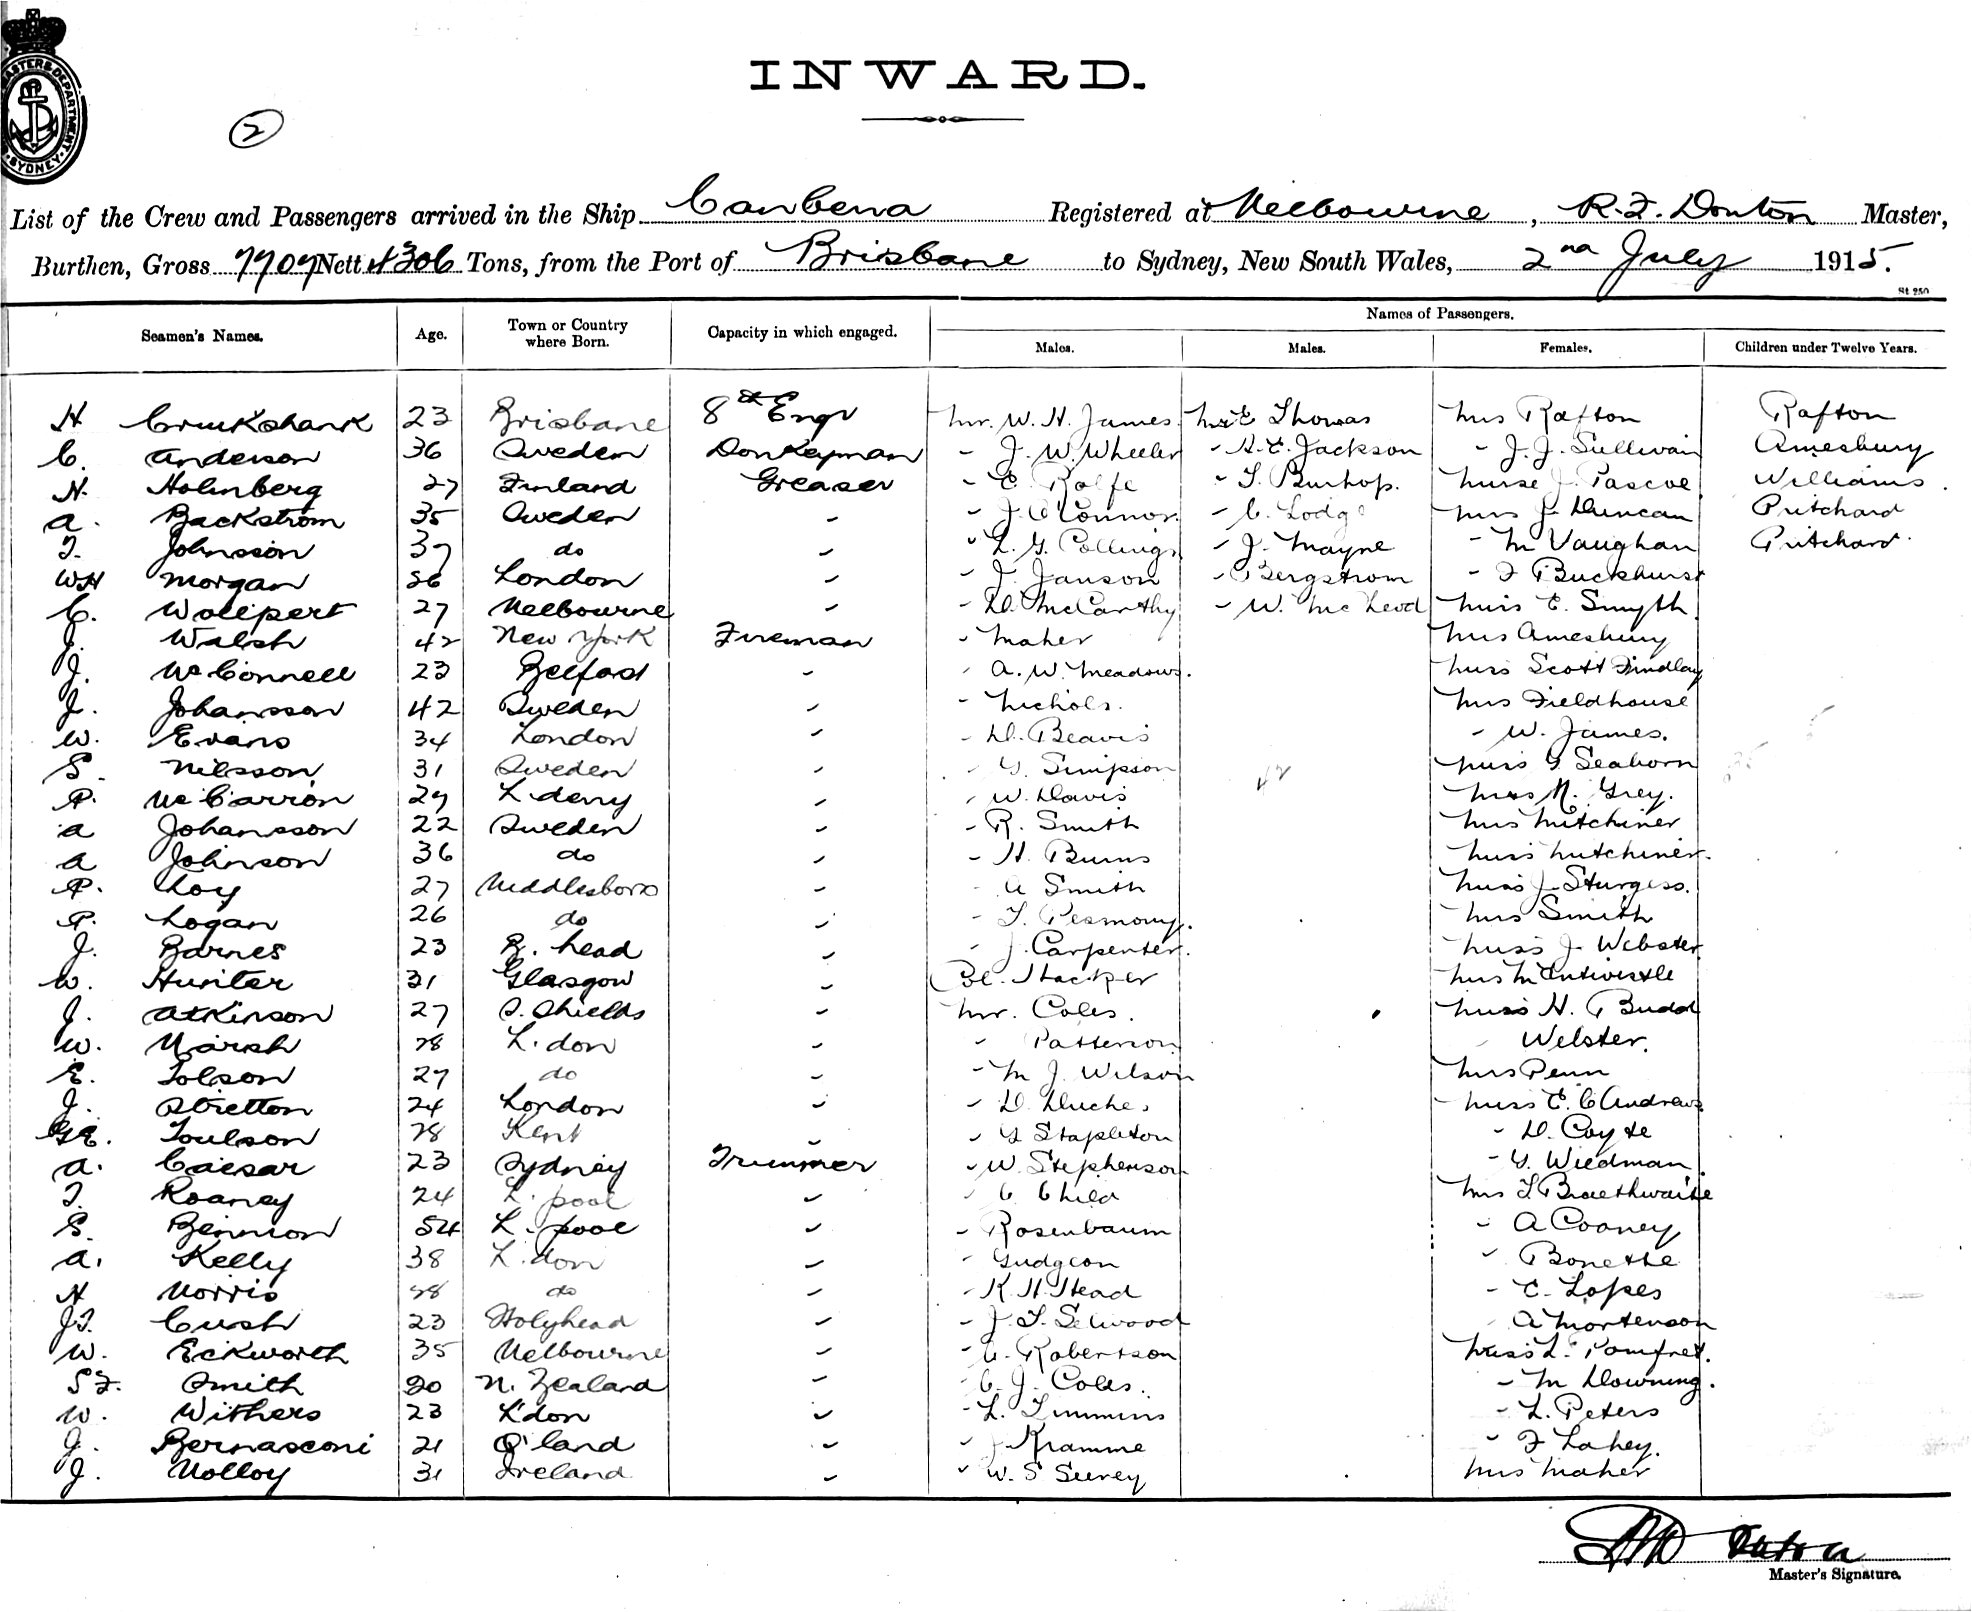 MASTERS DEPARTMENT SYDNEY
INWARD.
2
List of the Crew and Passengers arrived in the Ship Canberra Registered at Melbourne, R.F. Donton Master,
Burthen, Gross 7707 Nett 4306 Tons, from the Port of Brisbane to Sydney, New South Wales, 2nd July 1915.
St 250
Seamen's Names. Age. Town or Country where Born. Capacity in which engaged. Names of Passengers.
Males. Males. Females. Children under Twelve Years.
H Cruikshank 23 Brisbane 8th Engr Mr. W. H. James Mr E Thomas Mrs Rafton Rafton
C. Anderson 36 Sweden Donkeyman - J. W. Wheeler - A. E. Jackson - J. J. Sullivan Amesbury
H. Holmberg 27 Finland Greaser - E. Rolfe - T. Burhop. Nurse J. Pascoe Williams.
A. Backstrom 35 Sweden - J. O'Connor - C. Lodge Mrs J. Duncan Pritchard
T. Johnsson 37 do - L. G. Collings - J. Mayne - M Vaughan Pritchard
WH Morgan 26 London - J. Janson - Bergstrom - F Buckhurst
C. Wollpert 27 Melbourne - D. McCarthy - W. McLeod Miss E. Smyth
J. Walsh 42 New York Fireman - Maher Mrs Amesbury
J. McConnell 23 Belfast - A. W. Meadows. Miss Scott Findlay
J. Johansson 42 Sweden - Nichols. Mrs Fieldhouse
W. Evans 34 London - D. Beavis - W. James.
S. Nilsson 31 Sweden - G. Simpson 42 Miss G Seaborn
P. McCarron 29 L'derry - W. Davis Miss M. Grey.
A Johansson 22 Sweden - R. Smith Mrs Mitchiner
A Johnson 36 do - H. Burns Miss Mitchiner.
P. Loy 27 Middlesboro - A Smith Miss J. Sturgess.
P. Logan 26 do - T. Pesmony. Mrs Smith
J. Barnes 23 B. head - J. Carpenter. Miss J. Webster
W. Hunter 31 Glasgow - Col. Stacker Mrs M Entwistle
J. Atkinson 27 S. Shields - Mr. Coles. Miss H. Budd
W. Marsh 28 L. don - Patterson - Webster.
E. Tolson 27 do - M J. Wilson Mrs Penn
J. Stretton 24 London - D. Duches Miss E. C Andrews
G.E. Toulson 28 Kent - G Stapleton - D. Coyte
A. Caesar 23 Sydney Trimmer - W. Stephenson - G. Wiedman
T. Roaney 24 L. pool - C Child Mrs T. Braethwaite
S. Bennion 54 L. pool - Rosenbaum - A Cooney
A. Kelly 38 L. don - Gudgeon - Bonette
H Morris 38 do - K. H. Head - C. Lopes
J.T. Cush 23 Holyhead - J. T. Selwood A Mortenson
W. Eckworth 35 Melbourne - C. Robertson Miss L. Pomfret.
S F. Smith 20 N. Zealand - C. J. Coles. - M Downing.
W. Withers 23 L'don - L. Timmins - L. Peters
J. Bernasconi 21 Q'land - J Kramme - F Lahey.
J. Molloy 31 Ireland - W. S Seerey Mrs Maher
Master's Signature.